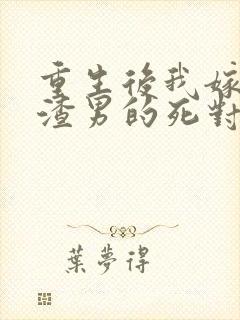 重生後我嫁
渣男的死對
葉夢得